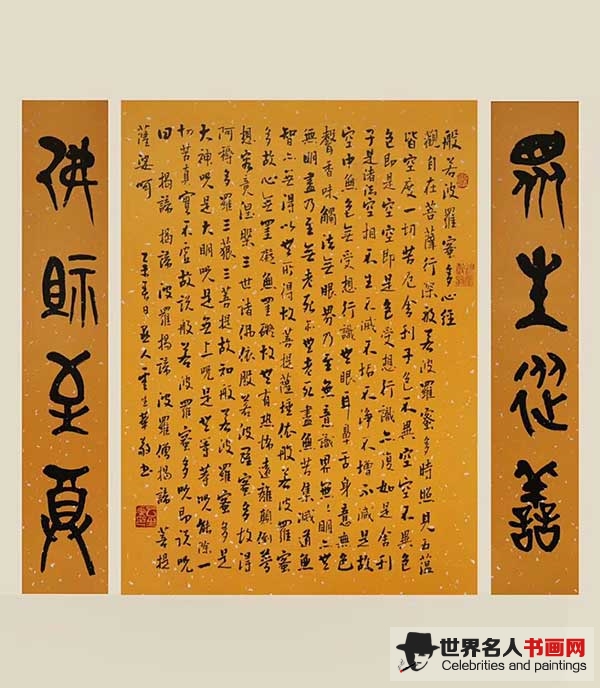 眾生從善
般若波羅蜜多心經
觀自在菩薩行深般若波羅蜜多時照見五蘊
皆空度一切苦厄舍利子色不異空空不異色
色即是空空即是色受想行識亦復如是舍利
子是諸法空相不生不滅不垢不淨不增不減是故
空中無色無受想行識無眼耳鼻舌身意無色
聲香味觸法無眼界乃至無意識界無無明亦無
無明盡乃至無老死亦無老死盡無苦集滅道無
智亦無得以無所得故菩提薩埵依般若波羅蜜
多故心無罣礙無罣礙故無有恐怖遠離顛倒夢
想究竟涅槃三世諸佛依般若波羅蜜多故得
阿耨多羅三藐三菩提故知般若波羅蜜多是
大神咒是大明咒是無上咒是無等等咒能除一
切苦真實不虛故說般若波羅蜜多咒即說咒
曰 揭諦 揭諦 波羅揭諦 波羅僧揭諦 菩提
薩婆呵
乙未春日 書
佛 至夏
世界名人书画网
Celebrities and paintings